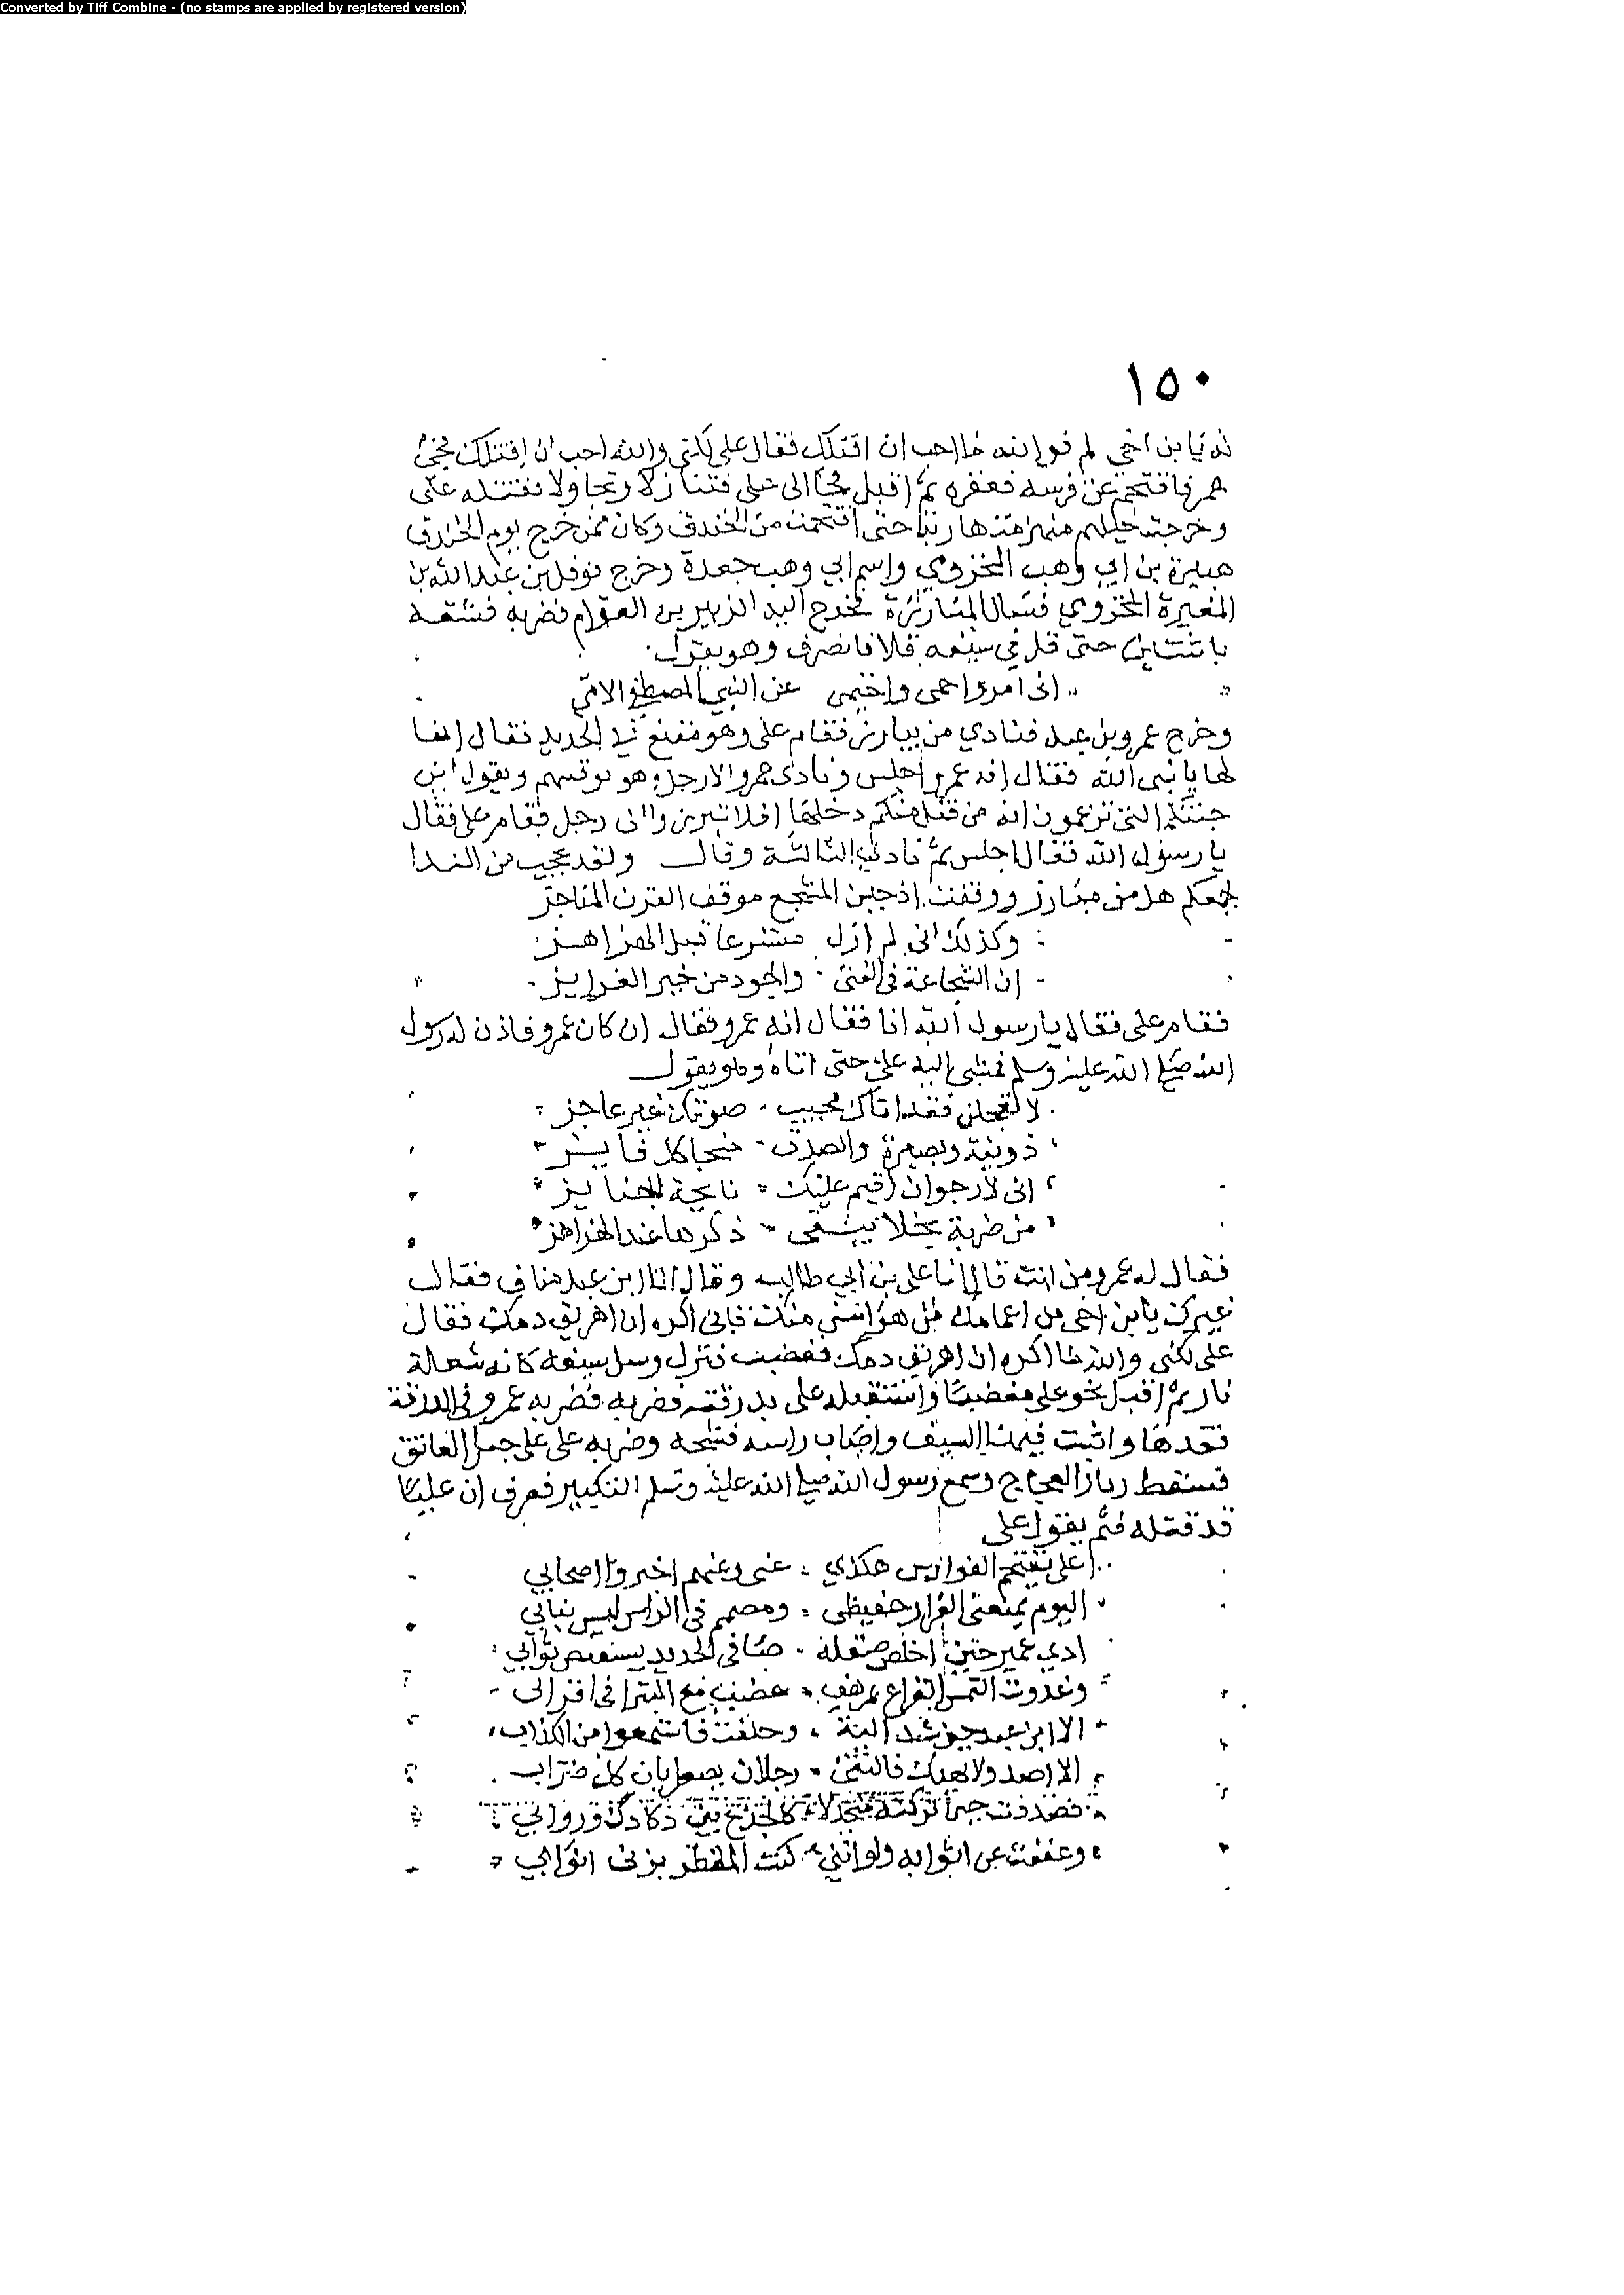 Converted by Tiff Combine - (no stamps are applied by registered version)
١٥٠
له يا بن اخي لم فوالله ما احب ان اقتلك فقال علي لكني والله احب ان اقتلك فحمي
عمر فاقتحم عن فرسه فعقره ثم اقبل الى علي فتنازلا وتجاولا فقتله علي
وخرجت خيلهم منهزمة هاربة حتى اقتحمت من الخندق وكان ممن خرج يوم الخندق
هبيرة بن ابي وهب المخزومي واسم ابي وهب جعدة وخرج نوفل بن عبد الله بن
المغيرة المخزومي فسال المبارزة فخرج اليه الزبير بن العوام فضربه فشقه
باثنتين حتى فل في سيفه فلا فانصرف وهو يقول
انى امروا حمى واحتمى عن النبي المصطفى الامي
وخرج عمرو بن عبد فنادي من يبارز فقام على وهو مقنع في الحديد فقال انا
لها يا نبى الله فقال انه عمرو اجلس ونادى عمرو الا رجل وهو يونبهم ويقول اين
جنتكم التى تزعمون انه من قتل منكم دخلها افلا تبرزوا الى رجل فقام على فقال
يا رسول الله فقال اجلس ثم نادي الثالثة وقال ولقد بححت من الندا
بجمعكم هل من مبارز ووقفت اذ جبن المشجع موقف القرن المناجز
وكذلك انى لم ازل متسرعا قبل الهزاهز
ان الشجاعة في الفتى والجود من خير الغرايز
فقام على فقال يا رسول الله انا فقال انه عمرو فقال ان كان عمرو فاذن له رسول
الله صلى الله عليه وسلم فمشى اليه على حتى اتاه وهو يقول
لا تعجلن فقد اتاك مجيب صوتك غير عاجز
ذو نية وبصيرة والصدق منجا كل فايز
انى لارجوان اقيم عليك نايحة الجنايز
من ضربة نجلا يبقى ذكرها عند الهزاهز
فقال له عمرو من انت قال انا على بن ابي طالب وقال انا ابن عبد مناف فقال
غيرك يا بن اخى من اعمامك من هو اسن منك فانى اكره ان اهريق دمك فقال
على لكنى والله ما اكره ان اهريق دمك فغضب فنزل وسل سيفه كانه شعلة
نار ثم اقبل نحو على مغضبا واستقبله على بدرقته فضربه فضربه عمرو في الدرقة
فقدها واثبت فيها السيف واصاب راسه فشجه وضربه على على حبل العاتق
فسقط وثار العجاج وسمع رسول الله صلى الله عليه وسلم التكبير فعرف ان عليا
قد قتله فثم يقول على
اعلى تقتحم الفوارس هكذي عنى وعنهم اخروا اصحابي
اليوم يمنعنى الفرار حفيظى ومصمم في الراس ليس بنابي
ادي عمير حين اخلص صقله صافى الحديد يستفيض ثوابي
وغدوت التمس القراع بمرهف عضب مع البترا في اقرابى
الا ابن عبد حين شد الية وحلفت فاستمعوا من الكذاب
الا اصد ولا يهلك فالتقى رجلان يضطربان كل ضراب
فصددت حين تركته متجدلا كالجذع بين دكادك وروابي
وعففت عن اثوابه ولو اننى كنت المقطر بزنى اثوابي